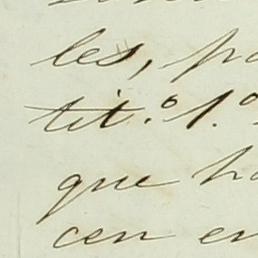 les, pa
tit.º 1.º
que ha
cen en